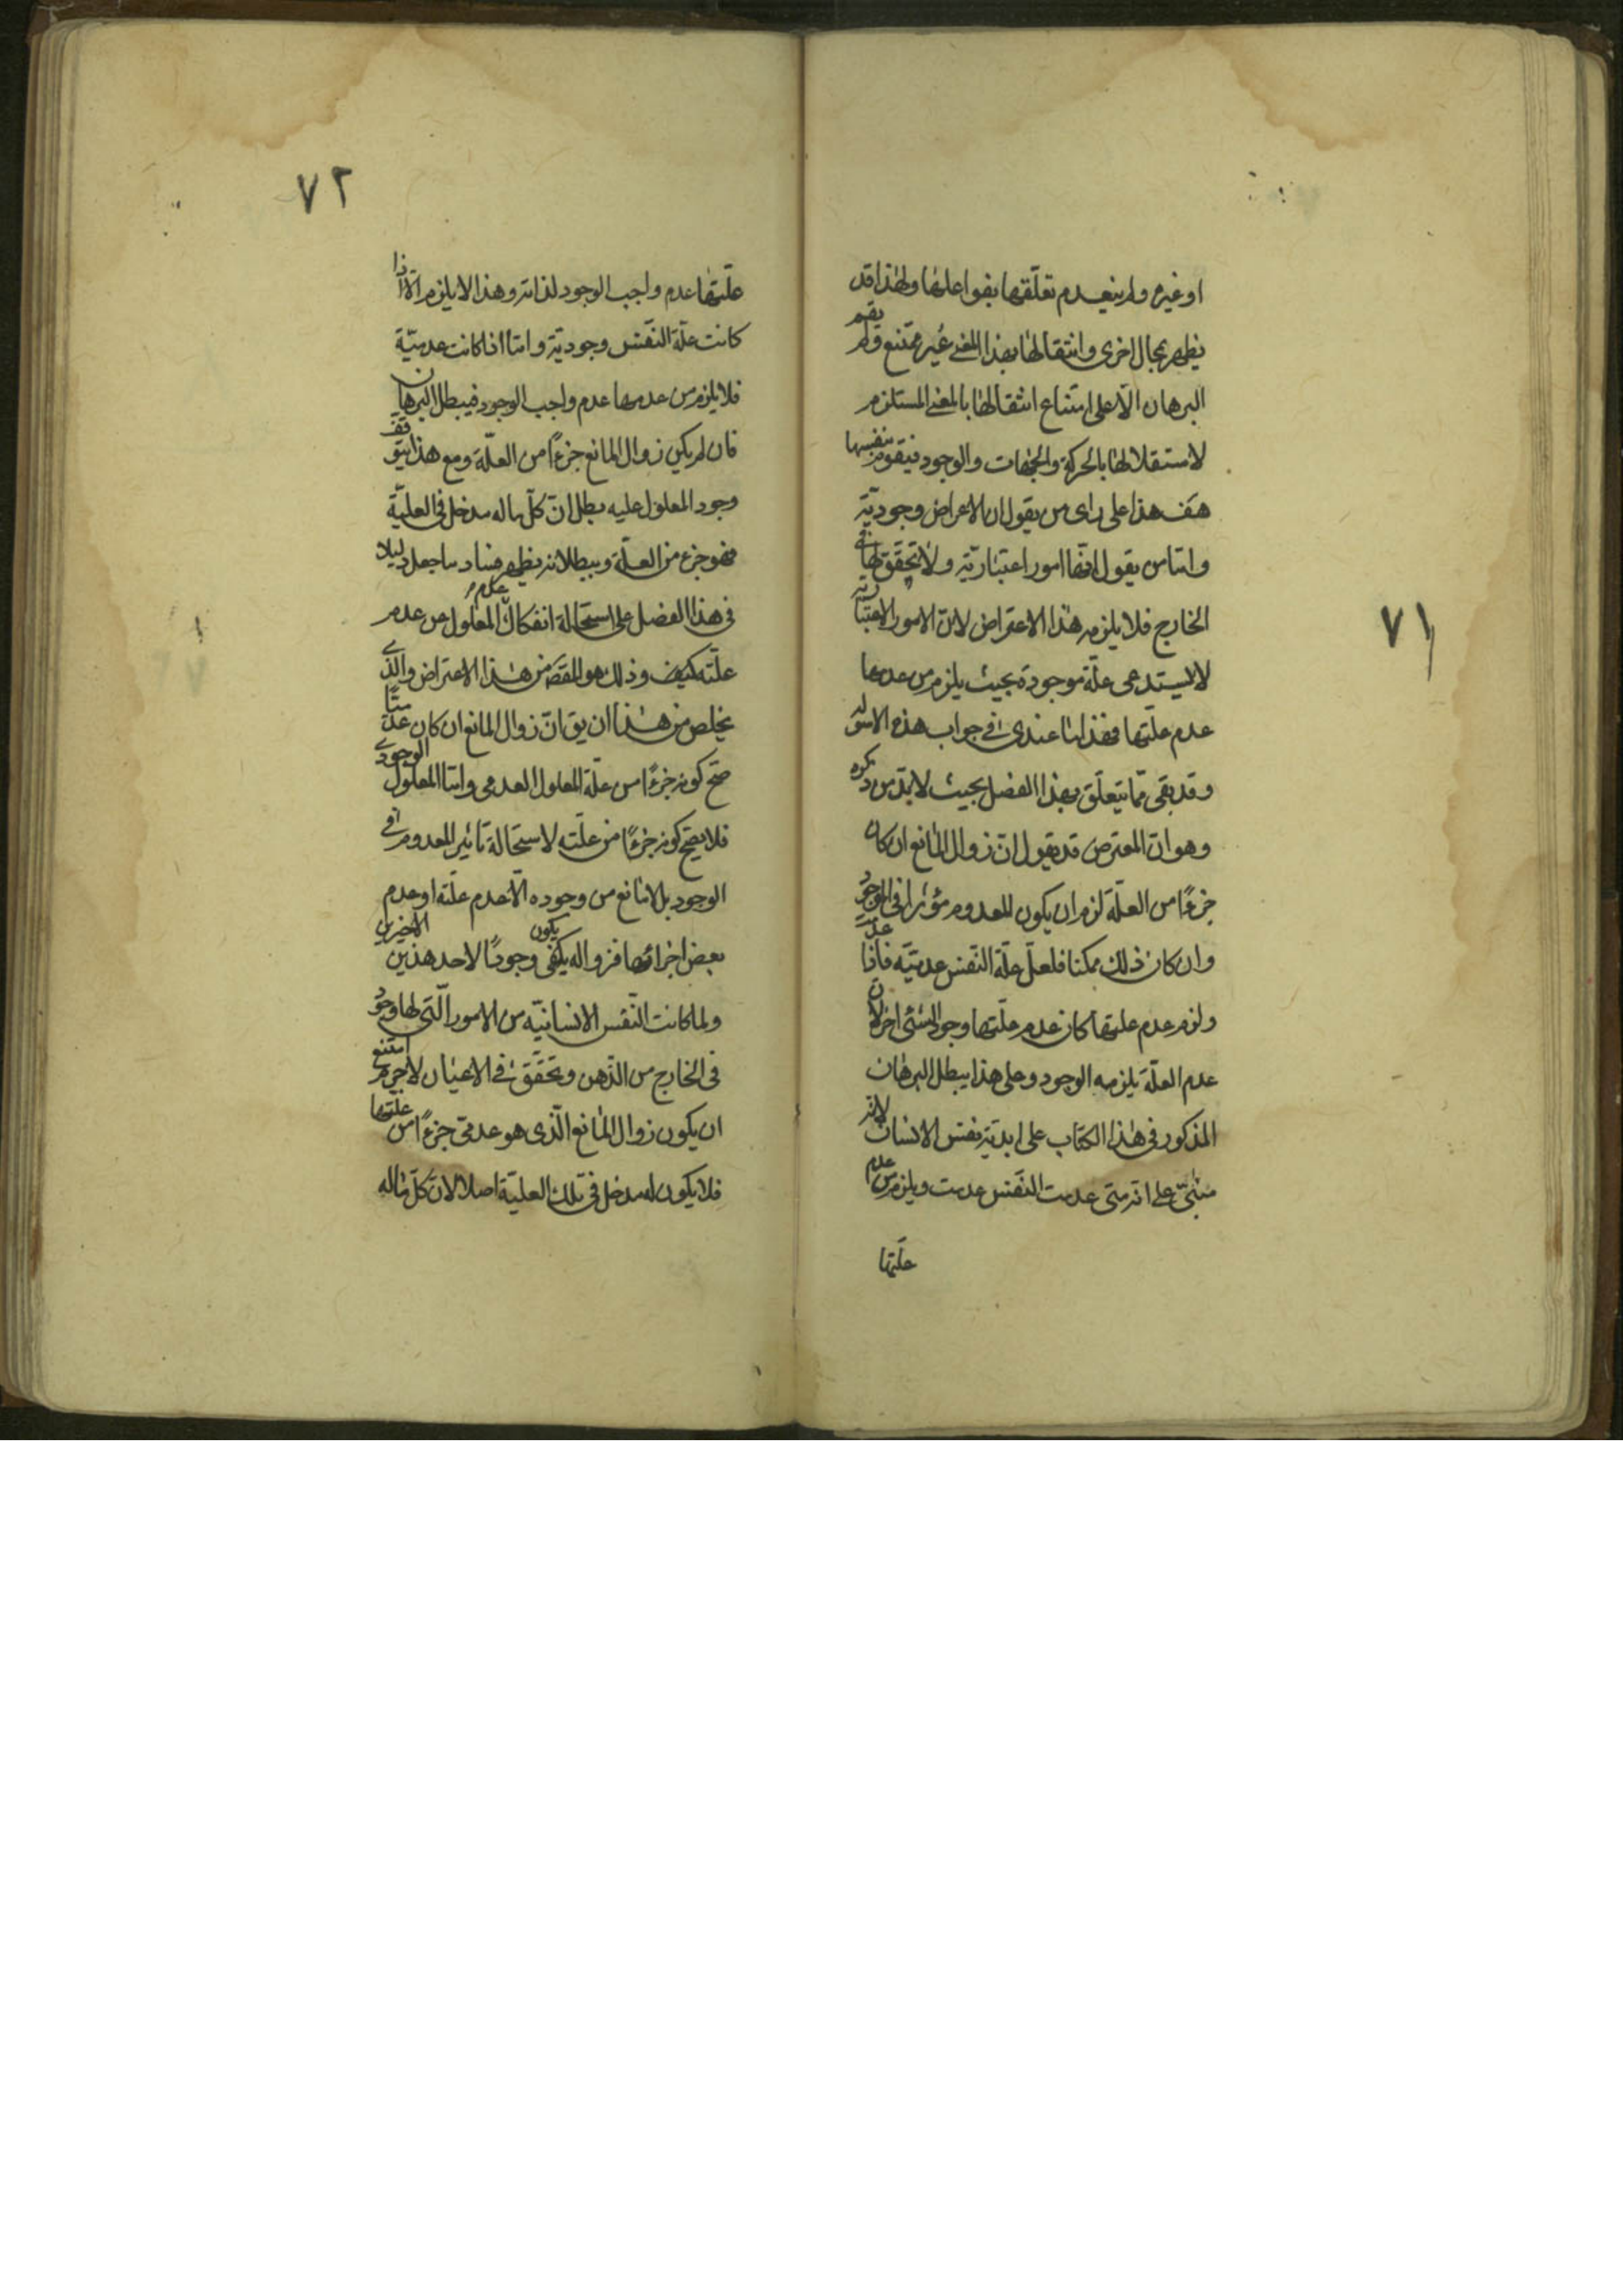 ٧١
او غيره ولم ينعدم تعلّقها بفواعلها ولهذا قد
يظهر بمجال اخرى وانتقالها بهذا المعنى غير ممتنع ولم يقم
البرهان الّا على امتناع انتقالها بالمعنى المستلزم
لاستقلالها بالحركة والجهات والوجود فيتقوم بنفسها
هف هذا على راى من يقول ان الاعراض وجوديّة
وامّا من يقول انّها امور اعتباريّة ولا تحقّق لها فى
الخارج فلا يلزمه هذا الاعتراض لان الامور الاعتبارية
لا يستدعى علّة موجودة بحيث يلزم من عدمها
عدم علّتها فهذا ما عندى فى جواب هذه الاسولة
وقد بقى ممّا يتعلّق بهذا الفصل بحيث لا بدّ من ذكره
وهو انّ المعترض قد يقول انّ زوال المانع ان كان
جزءًا من العلّة لزم ان يكون للمعدوم مؤثرا فى الوجود
وان كان ذلك ممكنا فلعلّ علّة النّفس عدميّة فاذا عدمت
ولزم عدم علتها كان عدم علّتها وجود الشئ اخر لان
عدم العلّة يلزمه الوجود وعلى هذا يبطل البرهان
المذكور فى هذا الكتاب على ابديّة نفس الانسان لانه
مبنىّ على انه متى عدمت النّفس عدمت ويلزم من عدم
علّتها
٧٢
علّتها عدم واجب الوجود لذاته وهذا لا يلزم الّا اذا
كانت علّة النّفس وجوديّة وامّا اذا كانت عدميّة
فلا يلزم من عدمها عدم واجب الوجود فيبطل البرهان
فان لم يكن زوال المانع جزءًا من العلّة ومع هذا يتوقف
وجود المعلول عليه بطل انّ كلّ ما له مدخل فى العليّة
فهو جزء من العلّة وببطلانه يظهر فساد ما جعل دليلا
فى هذا الفصل على استحالة انفكاك عدم المعلول عن عدم
علّته كيف وذلك هو المقصَ من هذا الاعتراض والّذى
يخلص من هذا ان يق انّ زوال المانع ان كان عدميّا
صحّ كونه جزءًا من علّة المعلول العدمى وامّا المعلول الوجودى
فلا يصحّ كونه جزءًا من علّته لاستحالة تاثير المعدوم فى
الوجود بل لا مانع من وجوده الّا عدم علّته او عدم
بعض اجزائها فزواله يكفى يكون وجودًا لاحد هذين الاخيرين
ولما كانت النّفس الانسانيّة من الامور الّتى لها وجود
فى الخارج من الذّهن وتحقّق فى الاعيان لاجرم امتنع
ان يكون زوال المانع الّذى هو عدمىّ جزءًا من علّتها
فلا يكون له مدخل فى تلك العليّة اصلا لانّ كلّ ما له